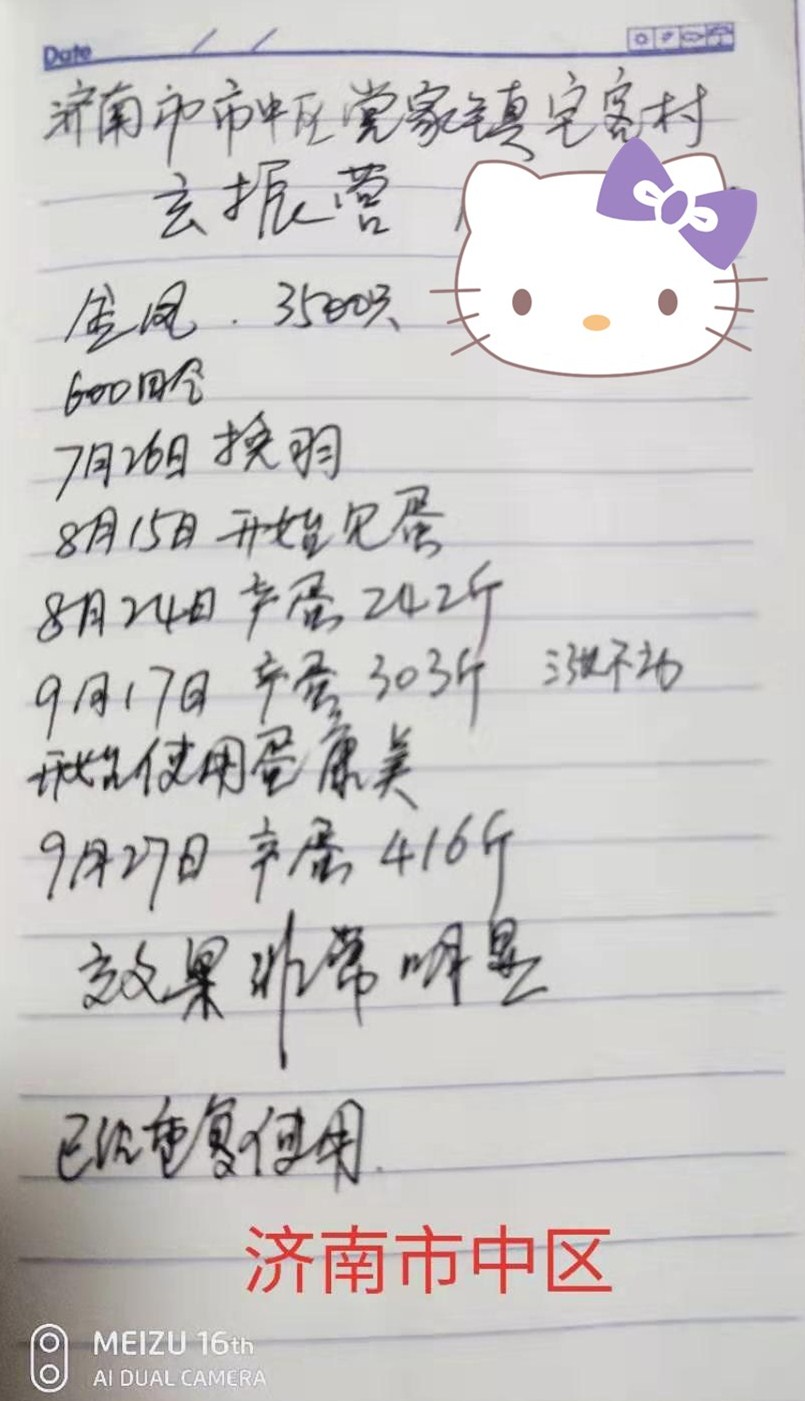 Date
济南市市中区党家镇宅客村
玄振营
金凤.3500只
600日令
7月26日 换羽
8月15日 开始见蛋
8月24日 产蛋242斤
9月17日 产蛋303斤 涨不动
开始使用蛋康美
9月27日 产蛋416斤
效果非常明显
已经重复使用.
济南市中区
MEIZU 16th
AI DUAL CAMERA